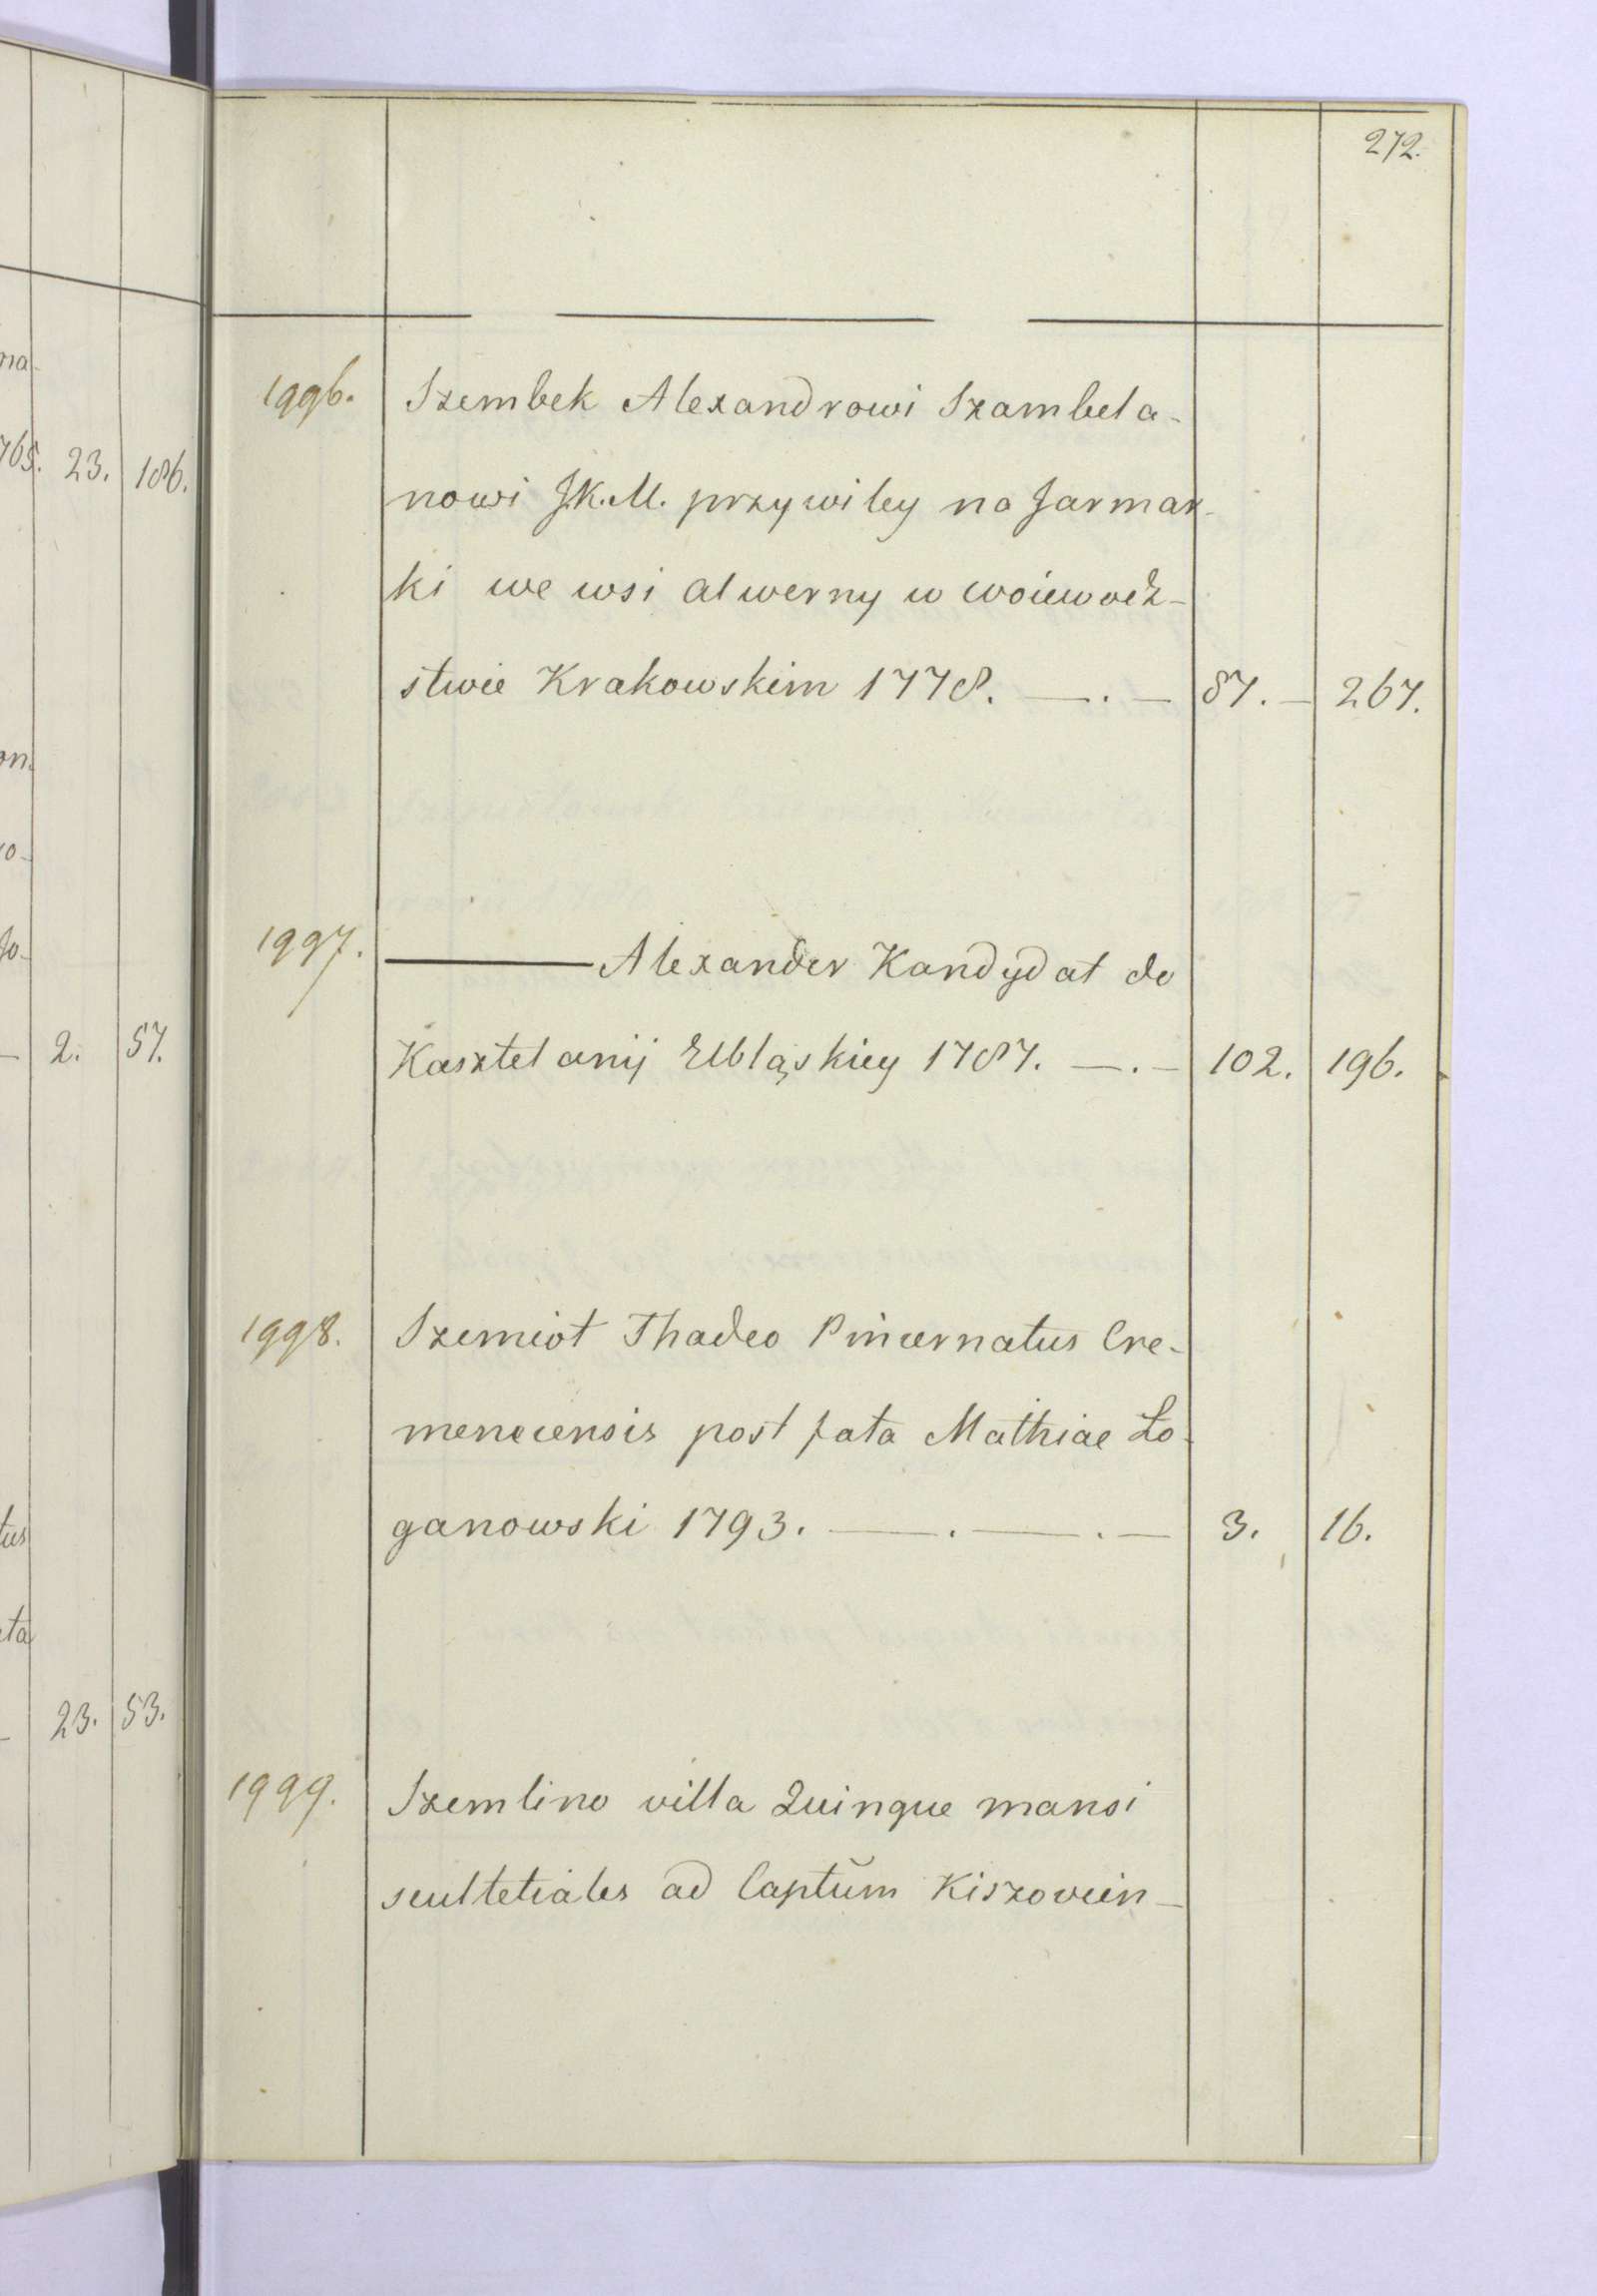 272.
1996. Szembek Alexandrowi Szambela-
nowi J.K.M. przywiley na Jarmar-
ki we wsi Alwerny w woiewodz-
stwie Krakowskim 1778. —.— 87. — 267.
1997. ——— Alexander Kandydat do
Kasztelanij Elbląskiey 1787. —.— 102. 196.
1998. Szemiot Thadeo Pincernatus Cre-
menecensis post fata Mathiae Lo-
ganowski 1793. —.—.— 3. 16.
1999. Szemlino villa Quinque mansi
scultetiales ad Captum
765. 23. 186.
2. 57.
23. 53.